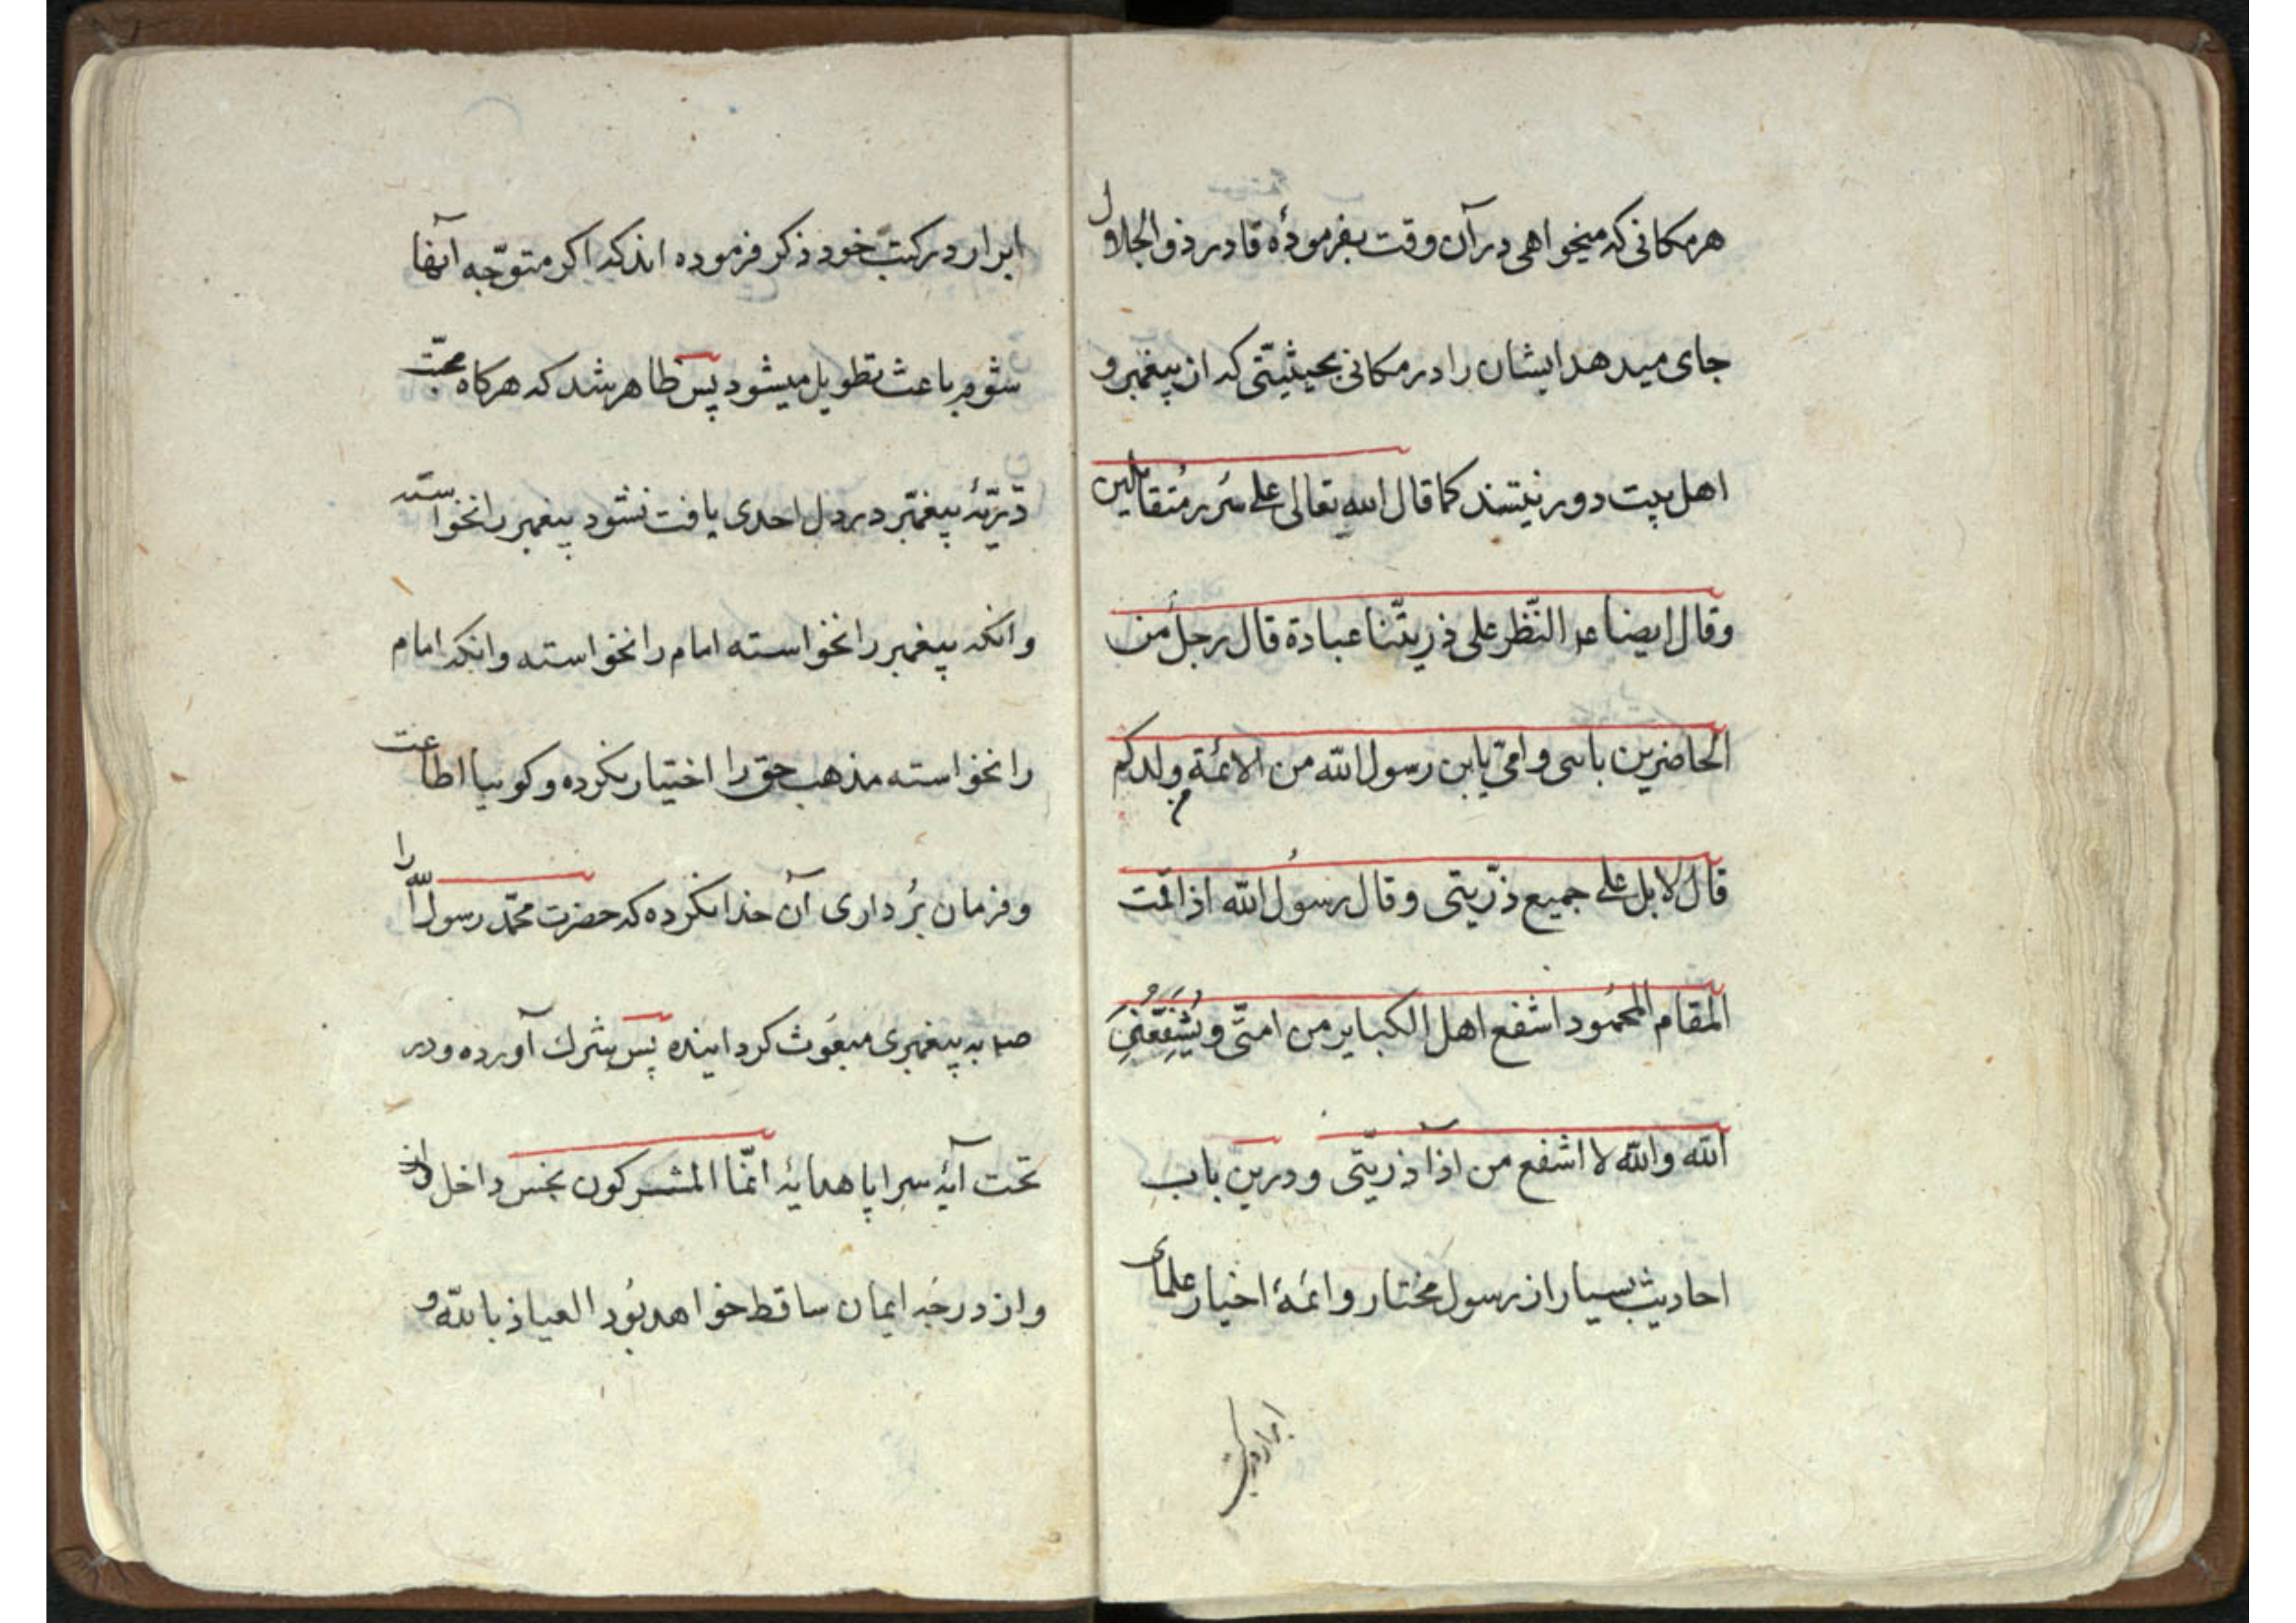 هرمکانی که میخواهی درآن وقت بفرمودۀ قادر ذوالجلال
جای میدهد ایشان را در مکانی بحیثیّتی که از پیغمبر و
اهل بیت دور نیستند کما قال الله تعالی علی سُرُر مُتقابلین
وقال ایضا عم النّظر علی ذریّتنا عبادة قال رجل من
الحاضرین بابی وامّی یابن رسول الله من الائمّة ولدکم
قال لا بل علی جمیع ذرّیتی وقال رسُول الله اذا قمت
المقام المحمُود اشفع اهل الکبایر من امتّی و یُشَفِّعُنِی
الله والله لا اشفع من اذآ ذریّتی و درین باب
احادیث بسیار از رسول مختار وائمۀ اخیار علمای
ابرار درکتب
ابرار درکتبِ خود ذکر فرموده اند که اکر متوجّه آنها
شوم باعث تطویل میشود پس ظاهر شد که هرکاه محبّت
ذرّیّۀ پیغمّبر در دل احدی یافت نشود پیغمبر را نخواسته
وانکه پیغمبر را نخواسته امام را نخواسته وانکه امام
را نخواسته مذهب حق را اختیار نکرده و کوییا اطاعت
و فرمان بُرداری آن خدا نکرده که حضرت محمّد رسول الله را
صلم به پیغمبری مبعُوث کردانیده پس شرك آورده و در
تحت آیۀ سراپا هدایۀ انّما المشرکون نجس داخل شد
و از درجۀ ایمان ساقط خواهد بُود العیاذ بالله و